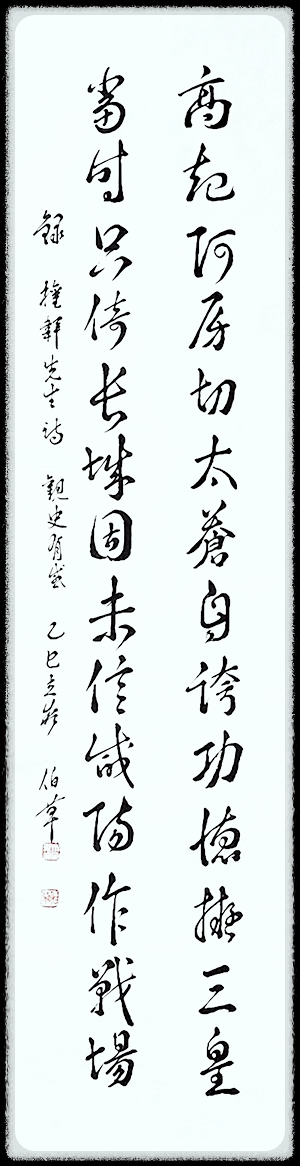 高起阿房切太蒼自誇功德擬三皇
當時只倚長城固未信咸陽作戰場
錄 擁軒先生詩 觀史有感 乙巳立秋 伯草